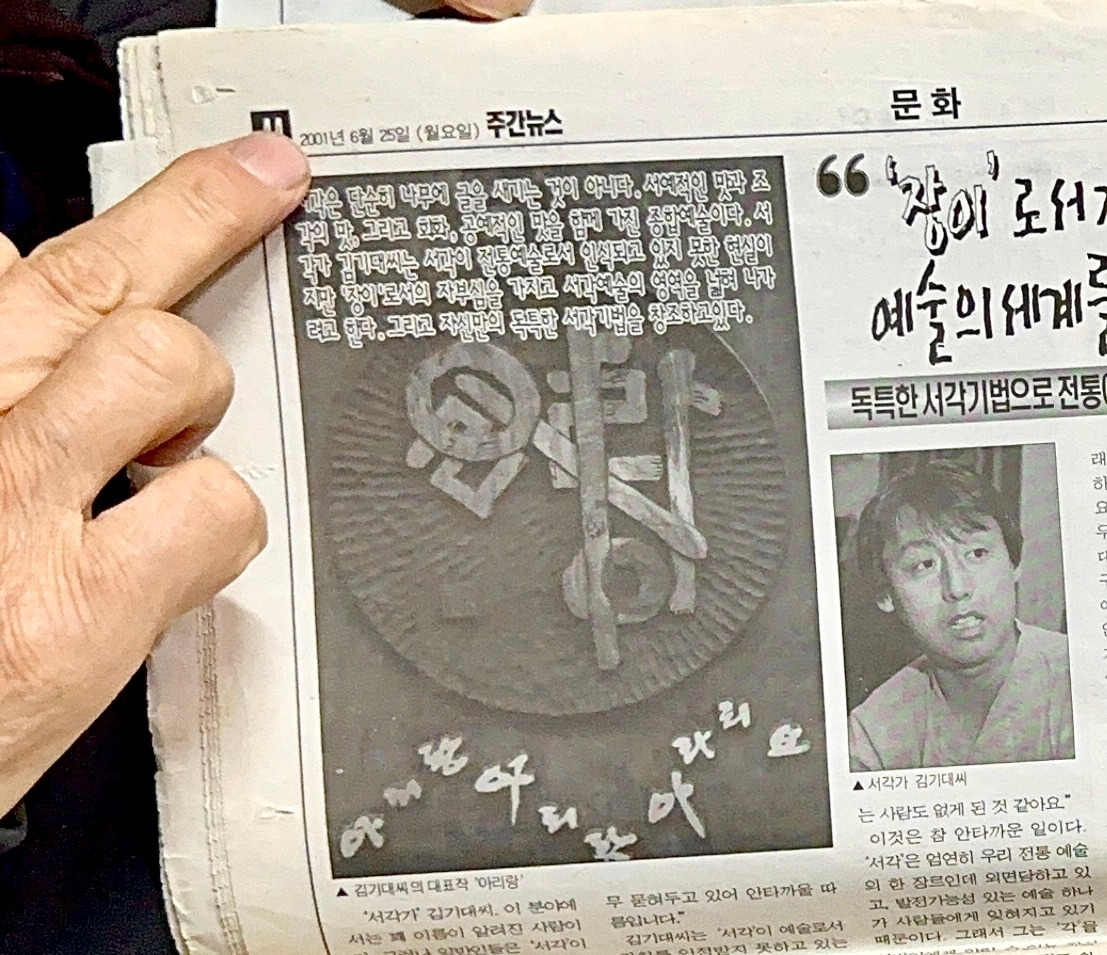 11 2001년 6월 25일 (월요일) 주간뉴스
문화
서각은 단순히 나무에 글을 새기는 것이 아니다. 서예적인 맛과 조
각의 맛, 그리고 회화, 공예적인 맛을 함께 가진 종합예술이다. 서
각가 김기대씨는 서각이 전통예술로서 인식되고 있지 못한 현실이
지만 '장이'로서의 자부심을 가지고 서각예술의 영역을 넓혀 나가
려고 한다. 그리고 자신만의 독특한 서각기법을 창조하고있다.
아리랑 아리랑 아라리요
▲ 김기대씨의 대표작 '아리랑'
'서각가' 김기대씨. 이 분야에
서는 꽤 이름이 알려진 사람이
다. 그러나 일반인들은 '서각'이
무 묻혀두고 있어 안타까울 따
름입니다."
김기대씨는 '서각'이 예술로서
가치를 인정받지 못하고 있는
“ '장이'로서
예술의 세계를
독특한 서각기법으로 전통
▲ 서각가 김기대씨
는 사람도 없게 된 것 같아요."
이것은 참 안타까운 일이다.
'서각'은 엄연히 우리 전통 예술
의 한 장르인데 외면당하고 있
고, 발전가능성 있는 예술 하나
가 사람들에게 잊혀지고 있기
때문이다. 그래서 그는 '각'을
래
하
요
우
대
구